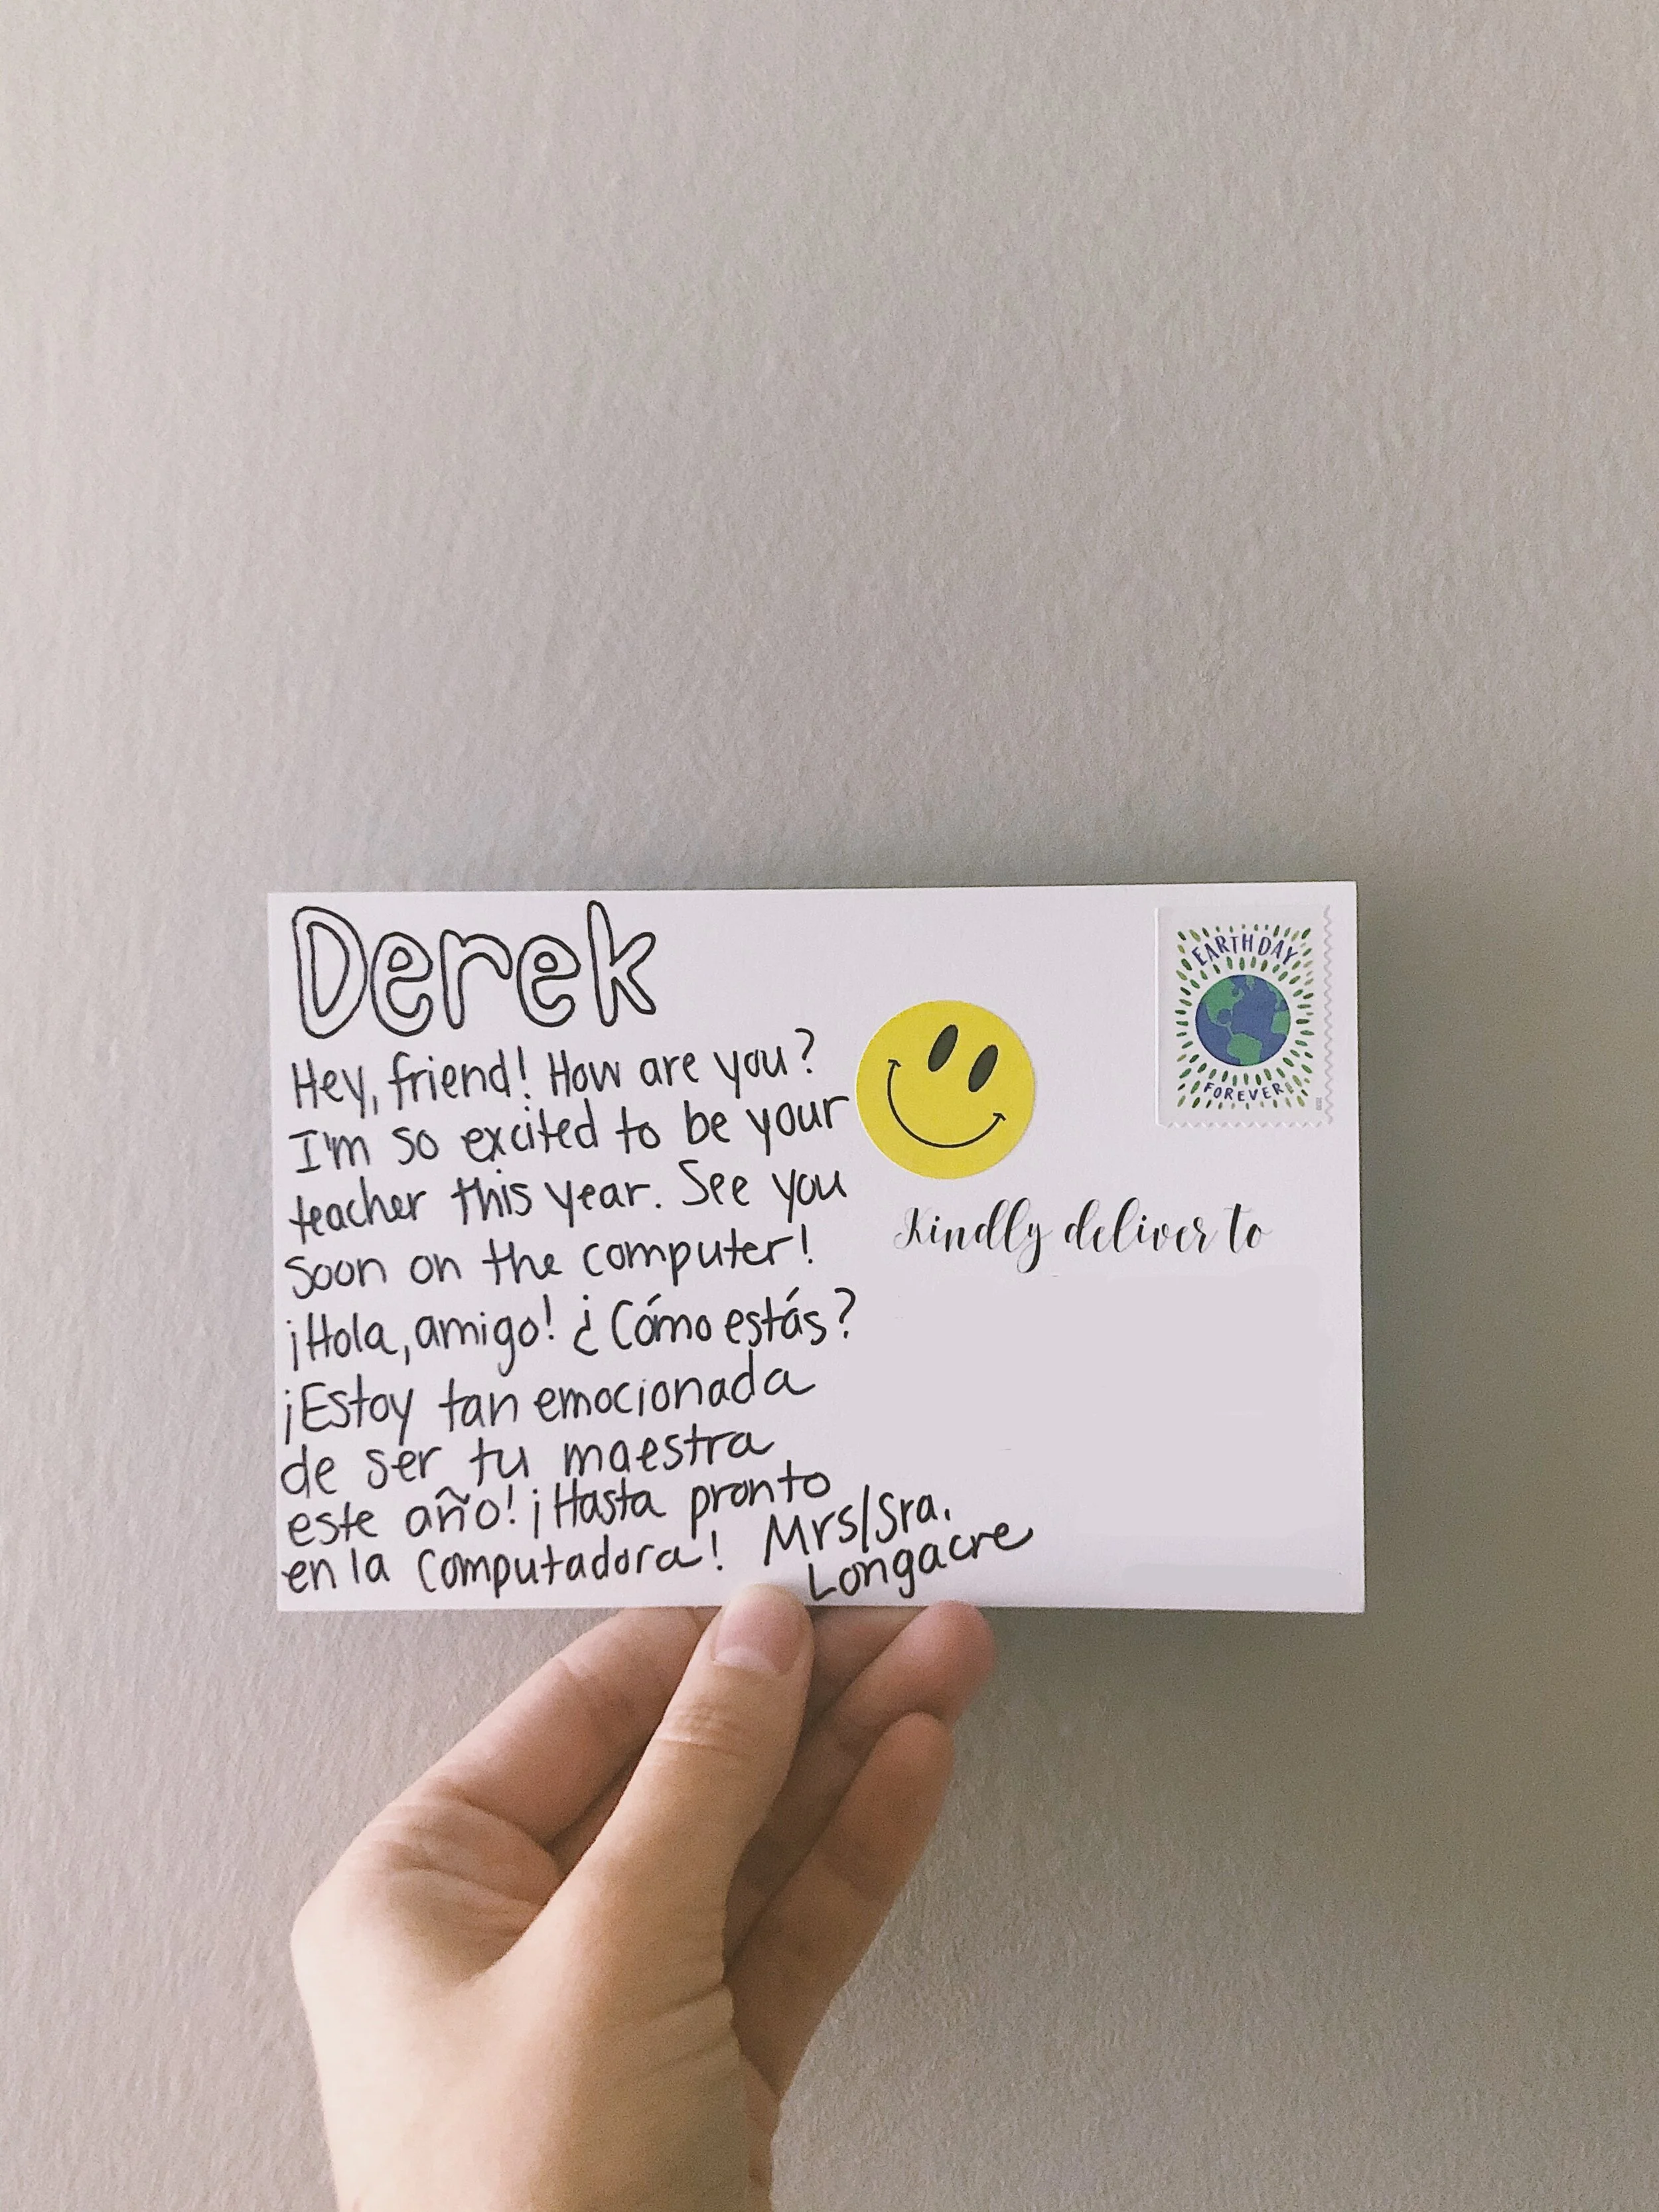 Derek
Hey, friend! How are you?
I'm so excited to be your
teacher this year. See you
soon on the computer!
¡Hola, amigo! ¿Cómo estás?
¡Estoy tan emocionada
de ser tu maestra
este año! ¡Hasta pronto
en la computadora!
Mrs/Sra.
Longacre
EARTH DAY
FOREVER
Kindly deliver to